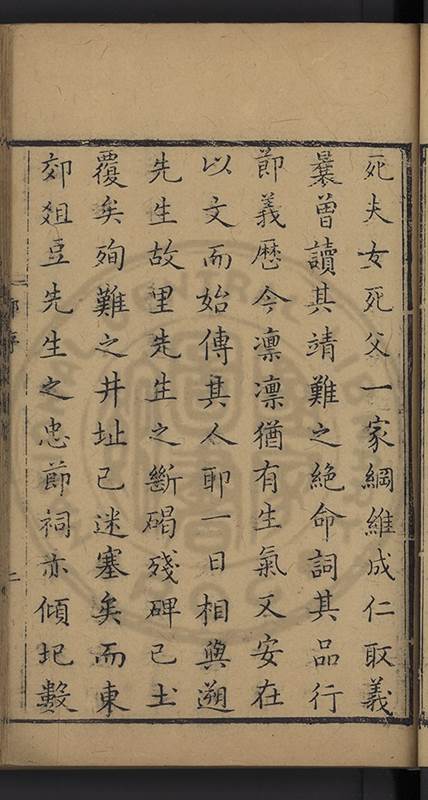 死夫女死父一家綱維成仁取義
曩曾讀其靖難之絕命詞其品行
節義歷今凛凛猶有生氣又安在
以文而始傳其人耶一日相與遡
先生故里先生之斷碣殘碑已土
覆矣殉難之井址已迷塞矣而東
郊俎豆先生之忠節祠亦傾圮數
序
二